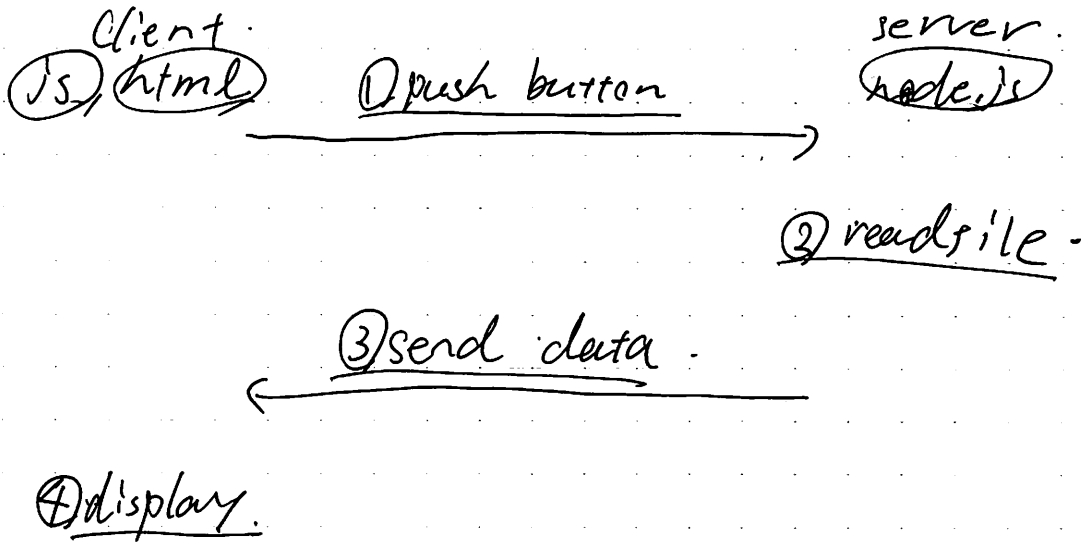 Client.
server.
js, html
① push button
node.js
② readfile.
③ send data.
④ display.